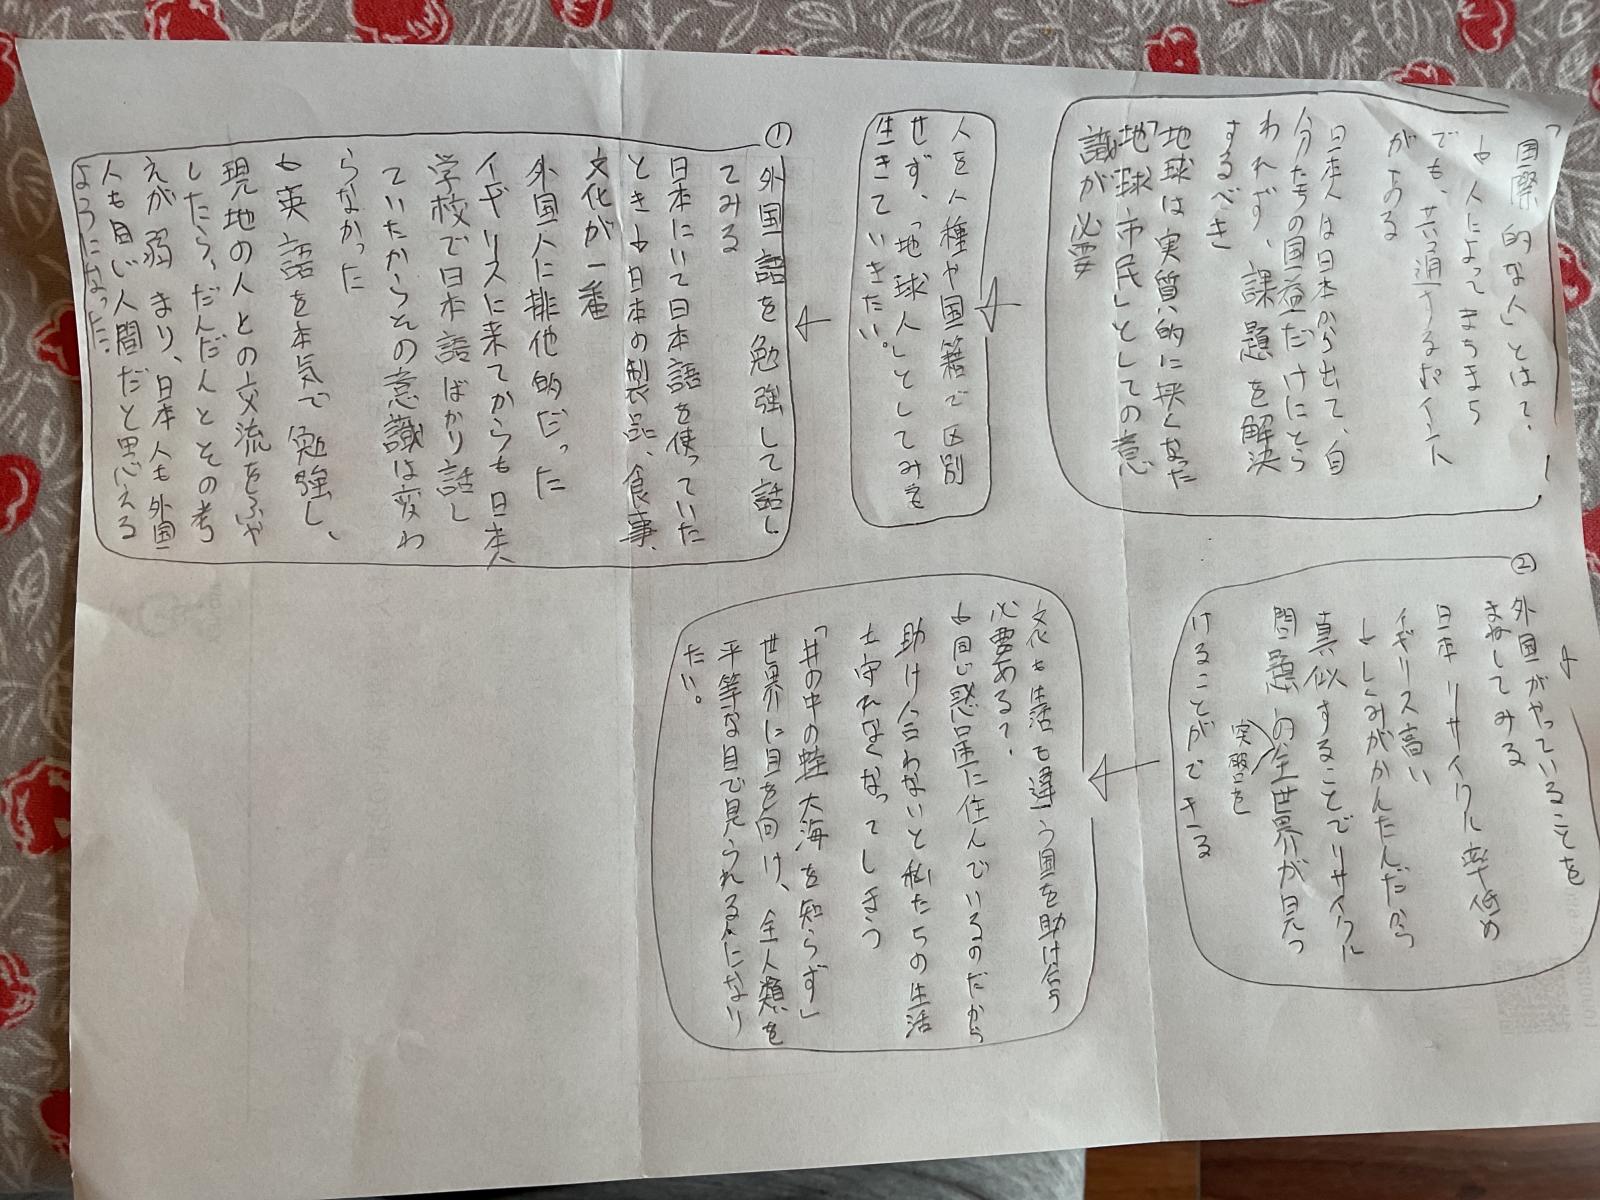 「国際的な人」とは?
↳人によってまちまち
でも、共通するポイント
がある
日本人は日本から出て、自
分たちの国益だけにとら
われず、課題を解決
するべき
地球は実質的に狭くなった
「地球市民」としての意
識が必要
人を人種や国籍で区別
せず、「地球人」としてみて
生きていきたい。
①外国語を勉強して話し
てみる
日本にいて日本語を使っていた
とき↳日本の製品、食事、
文化が一番
外国人に排他的だった
イギリスに来てからも日本人
学校で日本語ばかり話し
ていたからその意識は変わ
らなかった
↳英語を本気で勉強し、
現地の人との交流をふや
したら、だんだんとその考
えが弱まり、日本人も外国
人も同じ人間だと思える
ようになった。
②外国がやっていることを
まねしてみる
日本リサイクル率低め
イギリス高い
↳しくみがかんたんだから
真似することでリサイクル
問題の全世界が見つ
突破を
けることができる
文化も生活も違う国を助け合う
必要ある?
↳同じ惑星に住んでいるのだから
助け合わないと私たちの生活
も守れなくなってしまう
「井の中の蛙大海を知らず」
世界に目を向け、全人類を
平等な目で見られる人になり
たい。